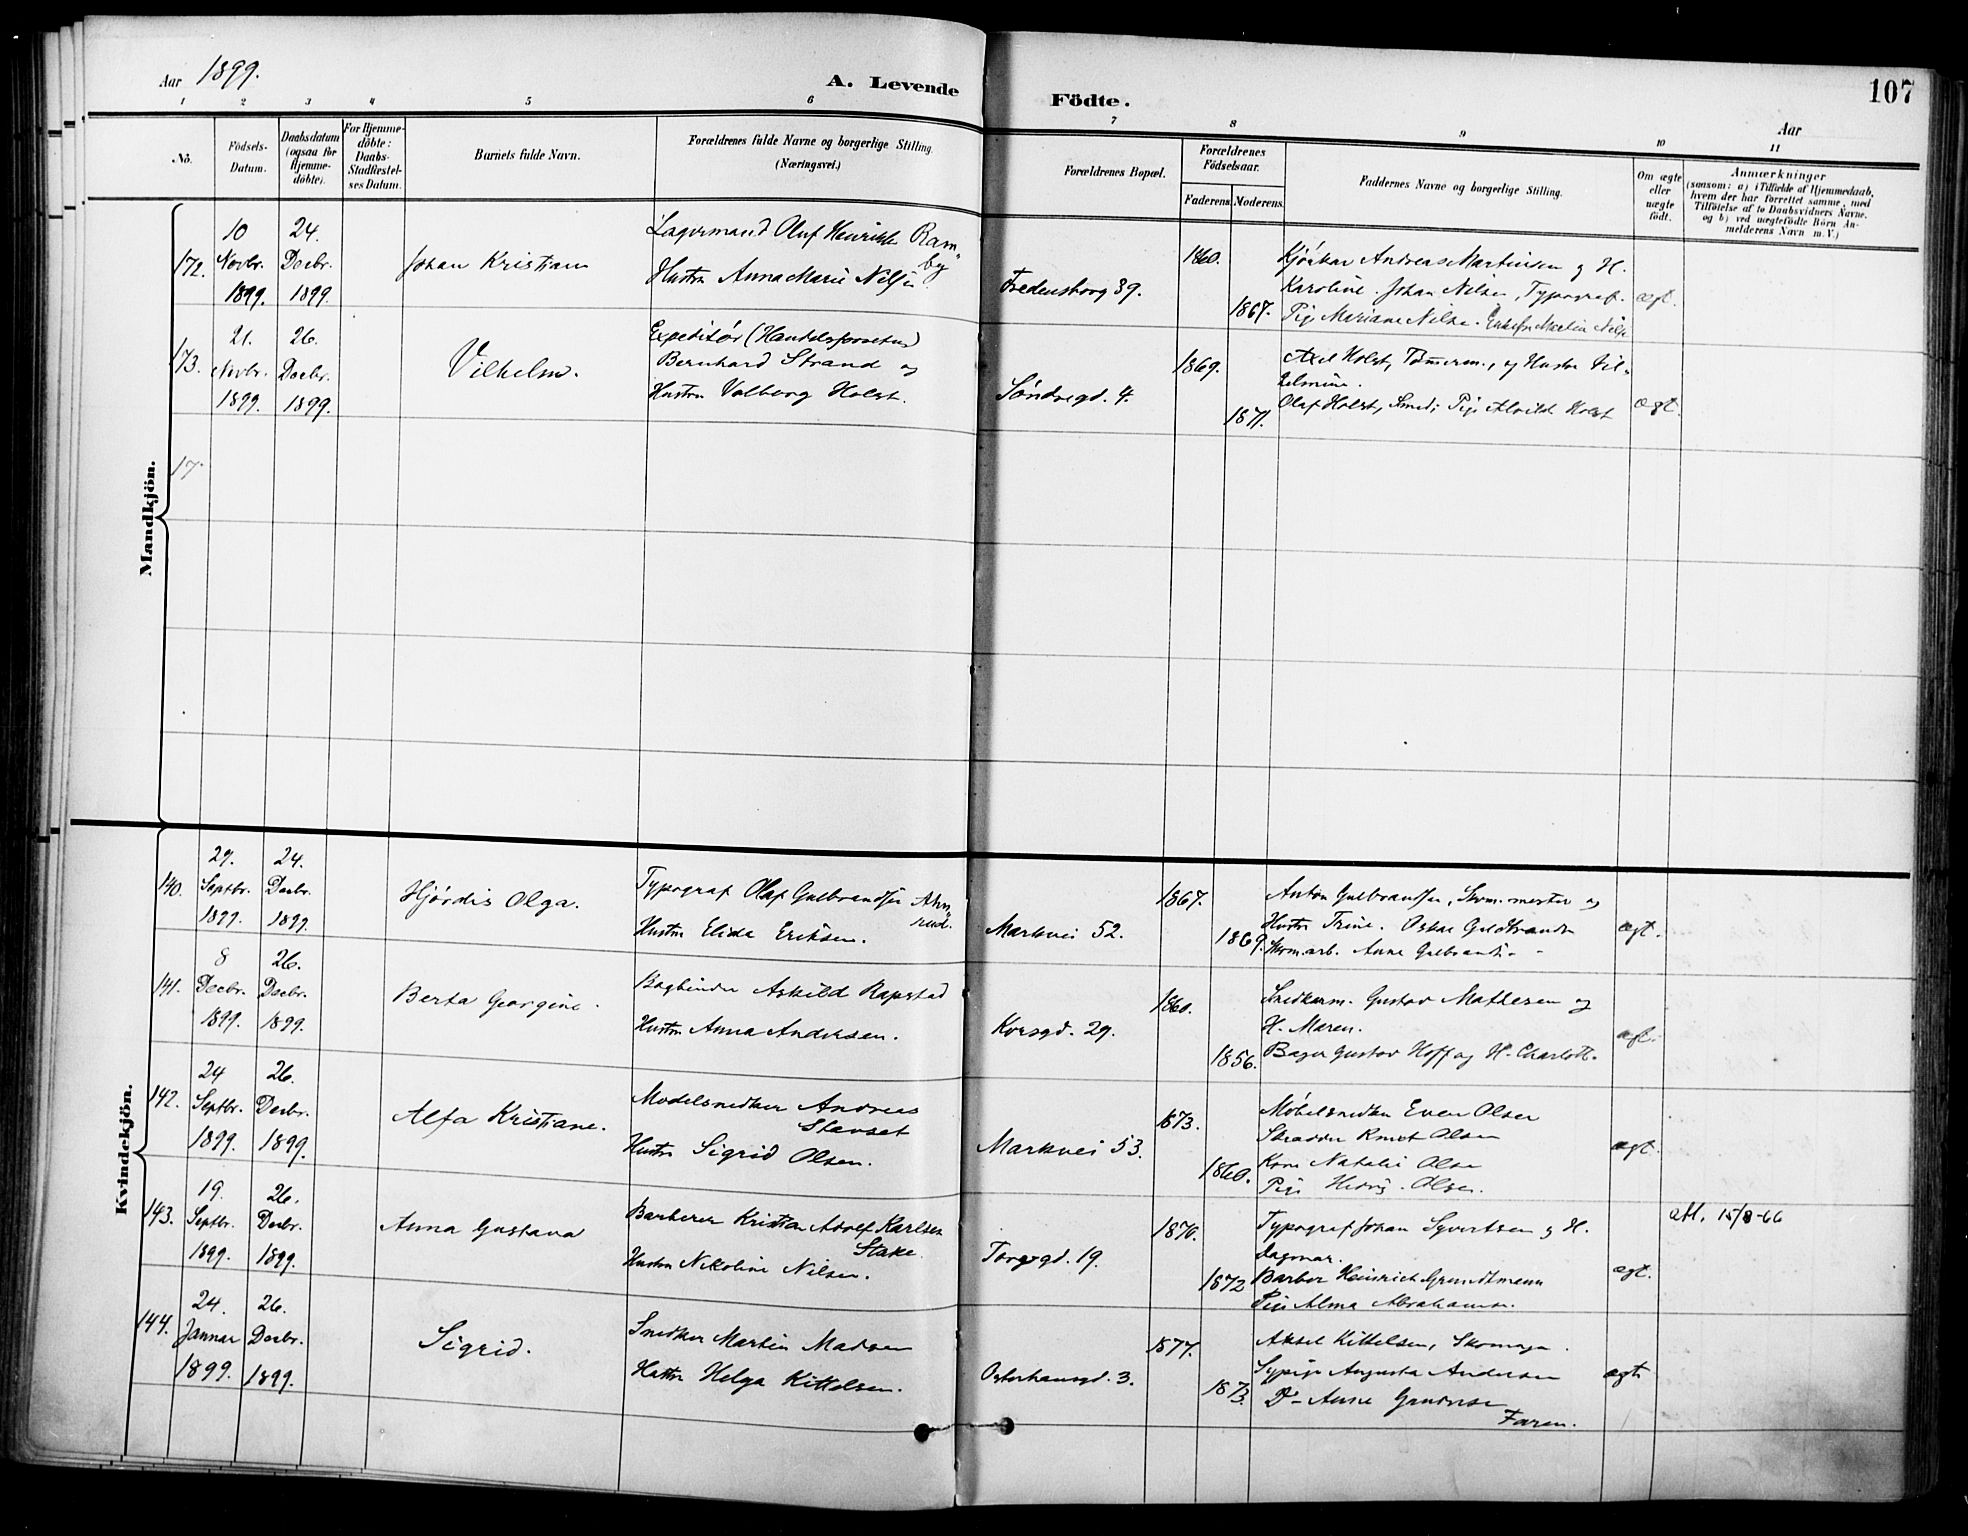 Aar 1899.
A. Levende Födte.
107
Aar
1 2 3 4 5 6 7 8 9 10 11
No.
Födsels-
Datum.
Daabsdatum
(ogsaa for
Hjemme-
döbte).
For Hjemme-
döbte:
Daabs-
Stadfæstel-
ses Datum.
Barnets fulde Navn.
Forældrenes fulde Navne og borgerlige Stilling.
(Næringsvei.)
Forældrenes Bopæl.
Forældrenes
Födselsaar.
Faderens.
Moderens.
Faddernes Navne og borgerlige Stilling.
Om ægte
eller
uægte
født.
Anmærkninger
(saasom: a) i Tilfælde af Hjemmedaab,
hvem der har forrettet samme, med
Tilföielse af to Daabsvidners Navne.
og b) ved uægtefödte Börn An-
melderens Navn m. V.)
Mandkjön.
172.
10
Novbr.
1899.
24.
Decbr.
1899.
Johan Kristian
Lagermand Oluf Henriksen Ram-
by
Hustru Anna Marie Nilsen
Fredensborg 39.
1860.
1867.
Andreas Martinsen og H.
Karoline. Johan Nilsen, Typograf.
Pige Mariane Nilsen. Martin Nilsen
ægt.
173.
21.
Novbr.
1899.
26.
Decbr.
1899.
Vilhelm.
Expeditør (Handelsforretn)
Bernhard Strand og
Hustru Valborg Holst.
Søndregd. 4.
1869.
1871.
Axel Holst, Tømmerm., og Hustru Vil-
helmine.
Olaf Holst, Smed; Pige Alvild Holst
ægt.
17
Kvindekjön.
140.
29.
Septbr.
1899.
24.
Decbr.
1899.
Hjørdis Olga.
Typograf Olaf Gulbrandsen Ahs-
rud.
Hustru Elida Eriksen.
Markvei 52.
1867.
1869.
Anton Gulbrandsen, Skom.mester og
Hustru Trine. Oskar Guldbrandsen
Skom.arb. Anne Gulbrands. -
ægt.
141.
8
Decbr.
1899.
26.
Decbr.
1899.
Berta Georgine.
Bogbinder Askild Rapstad
Hustru Anna Andersen.
Korsgd. 29.
1860.
1856.
Snedkerm. Gustav Mathesen og
H. Maren.
Bager Gustav Hoff og H. Charlotte.
ægt.
142.
24
Septbr.
1899.
26.
Decbr.
1899.
Alfa Kristiane.
Modelsnedker Andreas
Stavset
Hustru Sigrid Olsen.
Markvei 53.
1873.
1860.
Møbelsnedker Even Olsen
Skrædder Knut Olsen
Kone Natalie Olsen
Pige Hedvig Olsen.
ægt.
143.
19.
Septbr.
1899.
26.
Decbr.
1899.
Anna Gustava
Barberer Kristian Adolf Karlsen
Stake.
Hustru Nikoline Nilsen.
Torvgd. 19.
1870.
1872
Typograf Johan Syvertsen og H.
Dagmar.
Barber Heinrich Grundtmann
Pige Alma Abrahamsen.
ægt.
att. 15/8-66
144.
24.
Januar
1899.
26.
Decbr.
1899.
Sigrid.
Snedker Martin Madsen
Hustru Helga Kittelsen.
Osterhausgd. 3.
1877.
1873.
Aksel Kittelsen, Skomager.
Sypige Augusta Andersen
D- Anne Gundersen
Faren.
ægt.